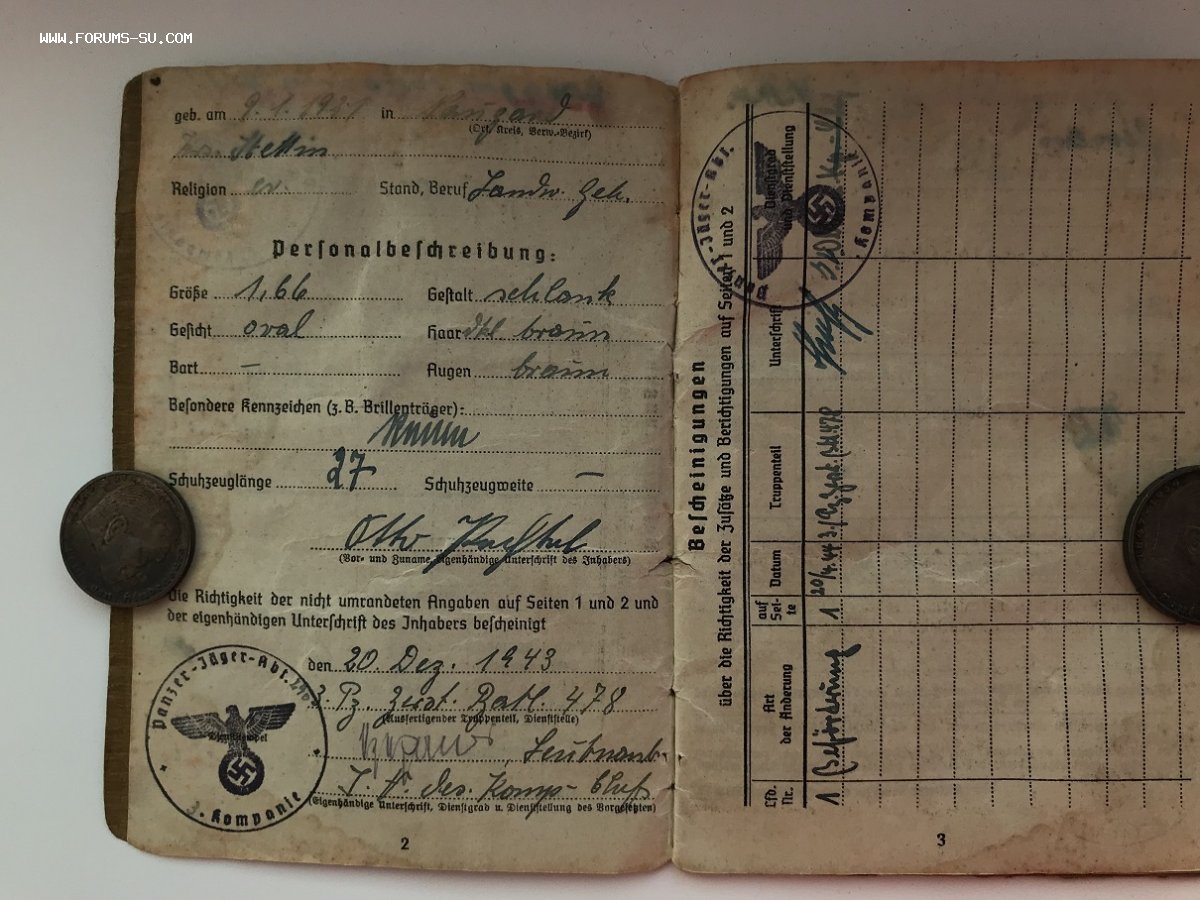 WWW.FORUMS-SU.COM
geb. am 9.1.1921 in Naugard
(Ort, Kreis, Verw.-Bezirk)
Stettin
Religion ev. Stand, Beruf Landw. Geh.
Personalbeschreibung:
Größe 1,66 Gestalt schlank
Gesicht oval Haar dkl. braun
Bart – Augen braun
Besondere Kennzeichen (z. B. Brillenträger):
Schuhzeuglänge 27 Schuhzeugweite –
Otto
(Vor- und Zuname, eigenhändige Unterschrift des Inhabers)
Die Richtigkeit der nicht umrandeten Angaben auf Seiten 1 und 2 und
der eigenhändigen Unterschrift des Inhabers bescheinigt
den 20. Dez. 1943
3. Pz. Zerst. Batl. 478
(Ausfertigender Truppenteil, Dienststelle)
Leutnant
I. V. des Komp. Chefs
(Eigenhändige Unterschrift, Dienstgrad u. Dienststellung des Vorgesetzten)
Panzer-Jäger-Abt.
Dienststempel
3. Kompanie
2
Bescheinigungen
über die Richtigkeit der Zusätze und Berichtigungen auf Seiten 1 und 2
Lfd. Nr.
Art der Änderung
auf Seite
Datum
Truppenteil
Unterschrift
Dienstgrad und Dienststellung
1 Beförderung 1 20/4.44 3./Pz. Zerst. Btl. 478
Panzer-Jäger-Abt.
Kompanie
3